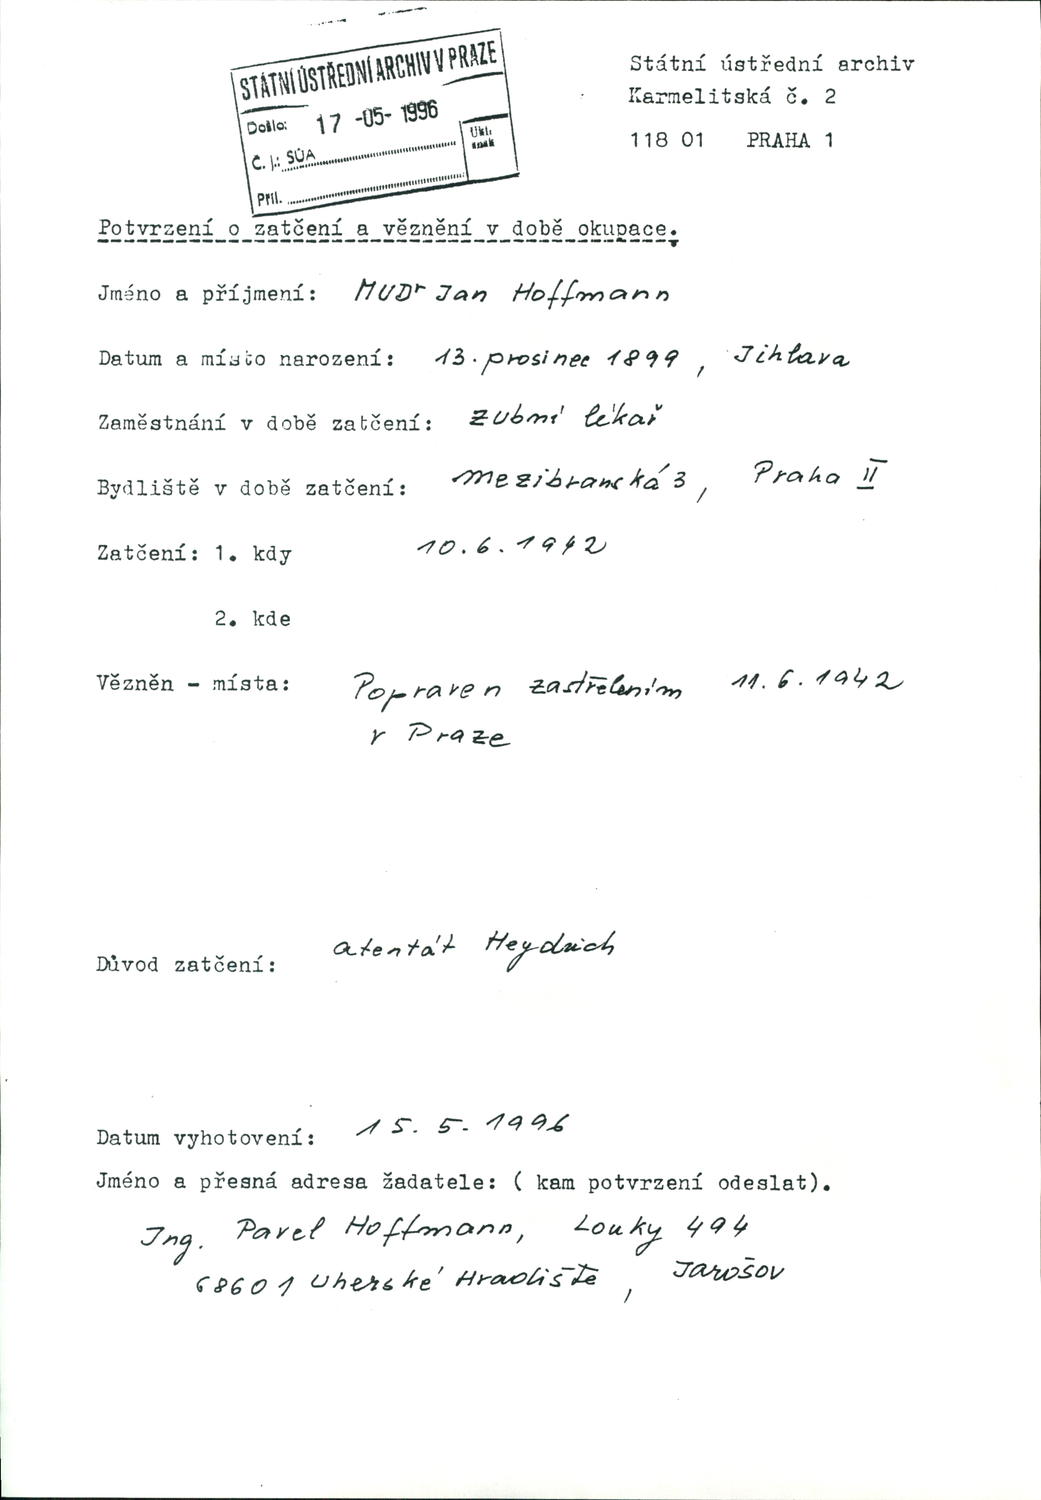 STÁTNÍ ÚSTŘEDNÍ ARCHIV V PRAZE
Došlo: 17 -05- 1996
Č. j.: SÚA
Ukl. znak
Příl.
Státní ústřední archiv
Karmelitská č. 2
118 01 PRAHA 1
Potvrzení o zatčení a věznění v době okupace.
Jméno a příjmení: MUDr Jan Hoffmann
Datum a místo narození: 13. prosinec 1899, Jihlava
Zaměstnání v době zatčení: zubní lékař
Bydliště v době zatčení: Mezibranská 3, Praha II
Zatčení: 1. kdy 10.6.1942
2. kde
Vězněn - místa: Popraven zastřelením 11.6.1942
v Praze
Důvod zatčení: atentát Heydrich
Datum vyhotovení: 15. 5. 1996
Jméno a přesná adresa žadatele: ( kam potvrzení odeslat).
Ing. Pavel Hoffmann, Louky 494
68601 Uherské Hradiště, Jarošov